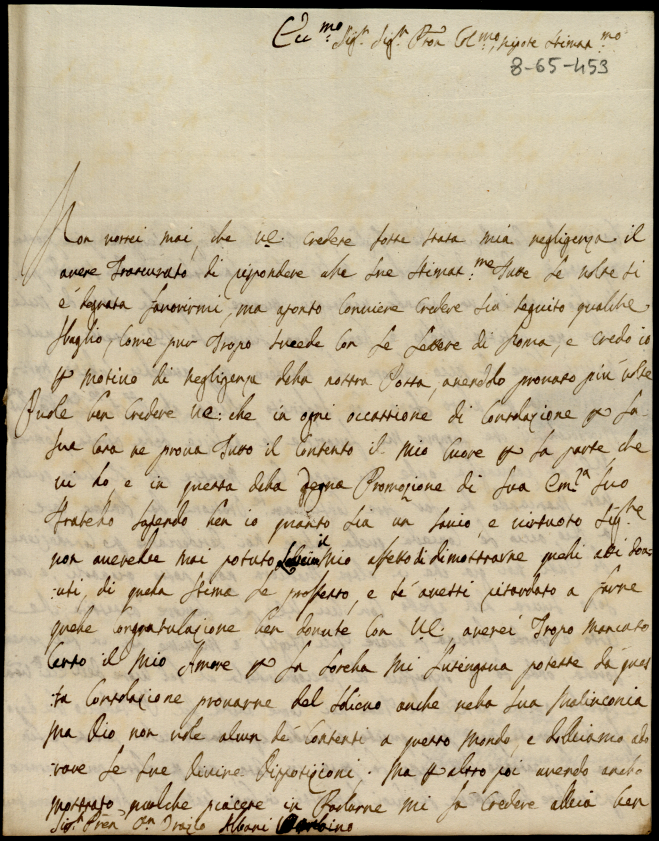 Ecc.mo Sig.r Sig.r Pron Col.mo, Nipote Stimat.mo
8-65-453
Non vorrei mai, che V.E. credere fosse stata mia negligenza il
avere trascurato di rispondere alle sue stimat.me tutte le volte si
è degnata favorirmi, ma aponto conviere credere sia seguito qualche
sbaglio, come pur tropo succede con le lettere di Roma, e credo io
p motivo di negligenza della nostra Posta, avendolo provato più volte
Puole ben credere V.E. che in ogni occassione di Consolazione p la
sua Casa ne prova tutto il Contento il mio Cuore p la parte, che
vi ho e in questa della degna Promozione di Sua Em.za suo
fratello sapendo ben io quanto sia un savio, e virtuoso Sig.re
non averebbe mai potuto il mio affetto di dimostrarne quelli atti dou=
=uti, di quela stima le professo, e se avessi ritardato a farne
quele congratulazione ben dovute con V.E. averei tropo mancato
Certo il mio Amore p la sorella mi lusingava potesse da ques
=ta Consolazione provarne del solievo anche nella sua malinconia
ma Dio non vole alcun de contenti a questo mondo, e dobbiamo ado
=rare le sue divine disposizioni. Ma p altro poi avendo ancho
mostrato qualche piacere in Parlarne mi fà credere abbia ben
Sig.r Pren Orazio Albani